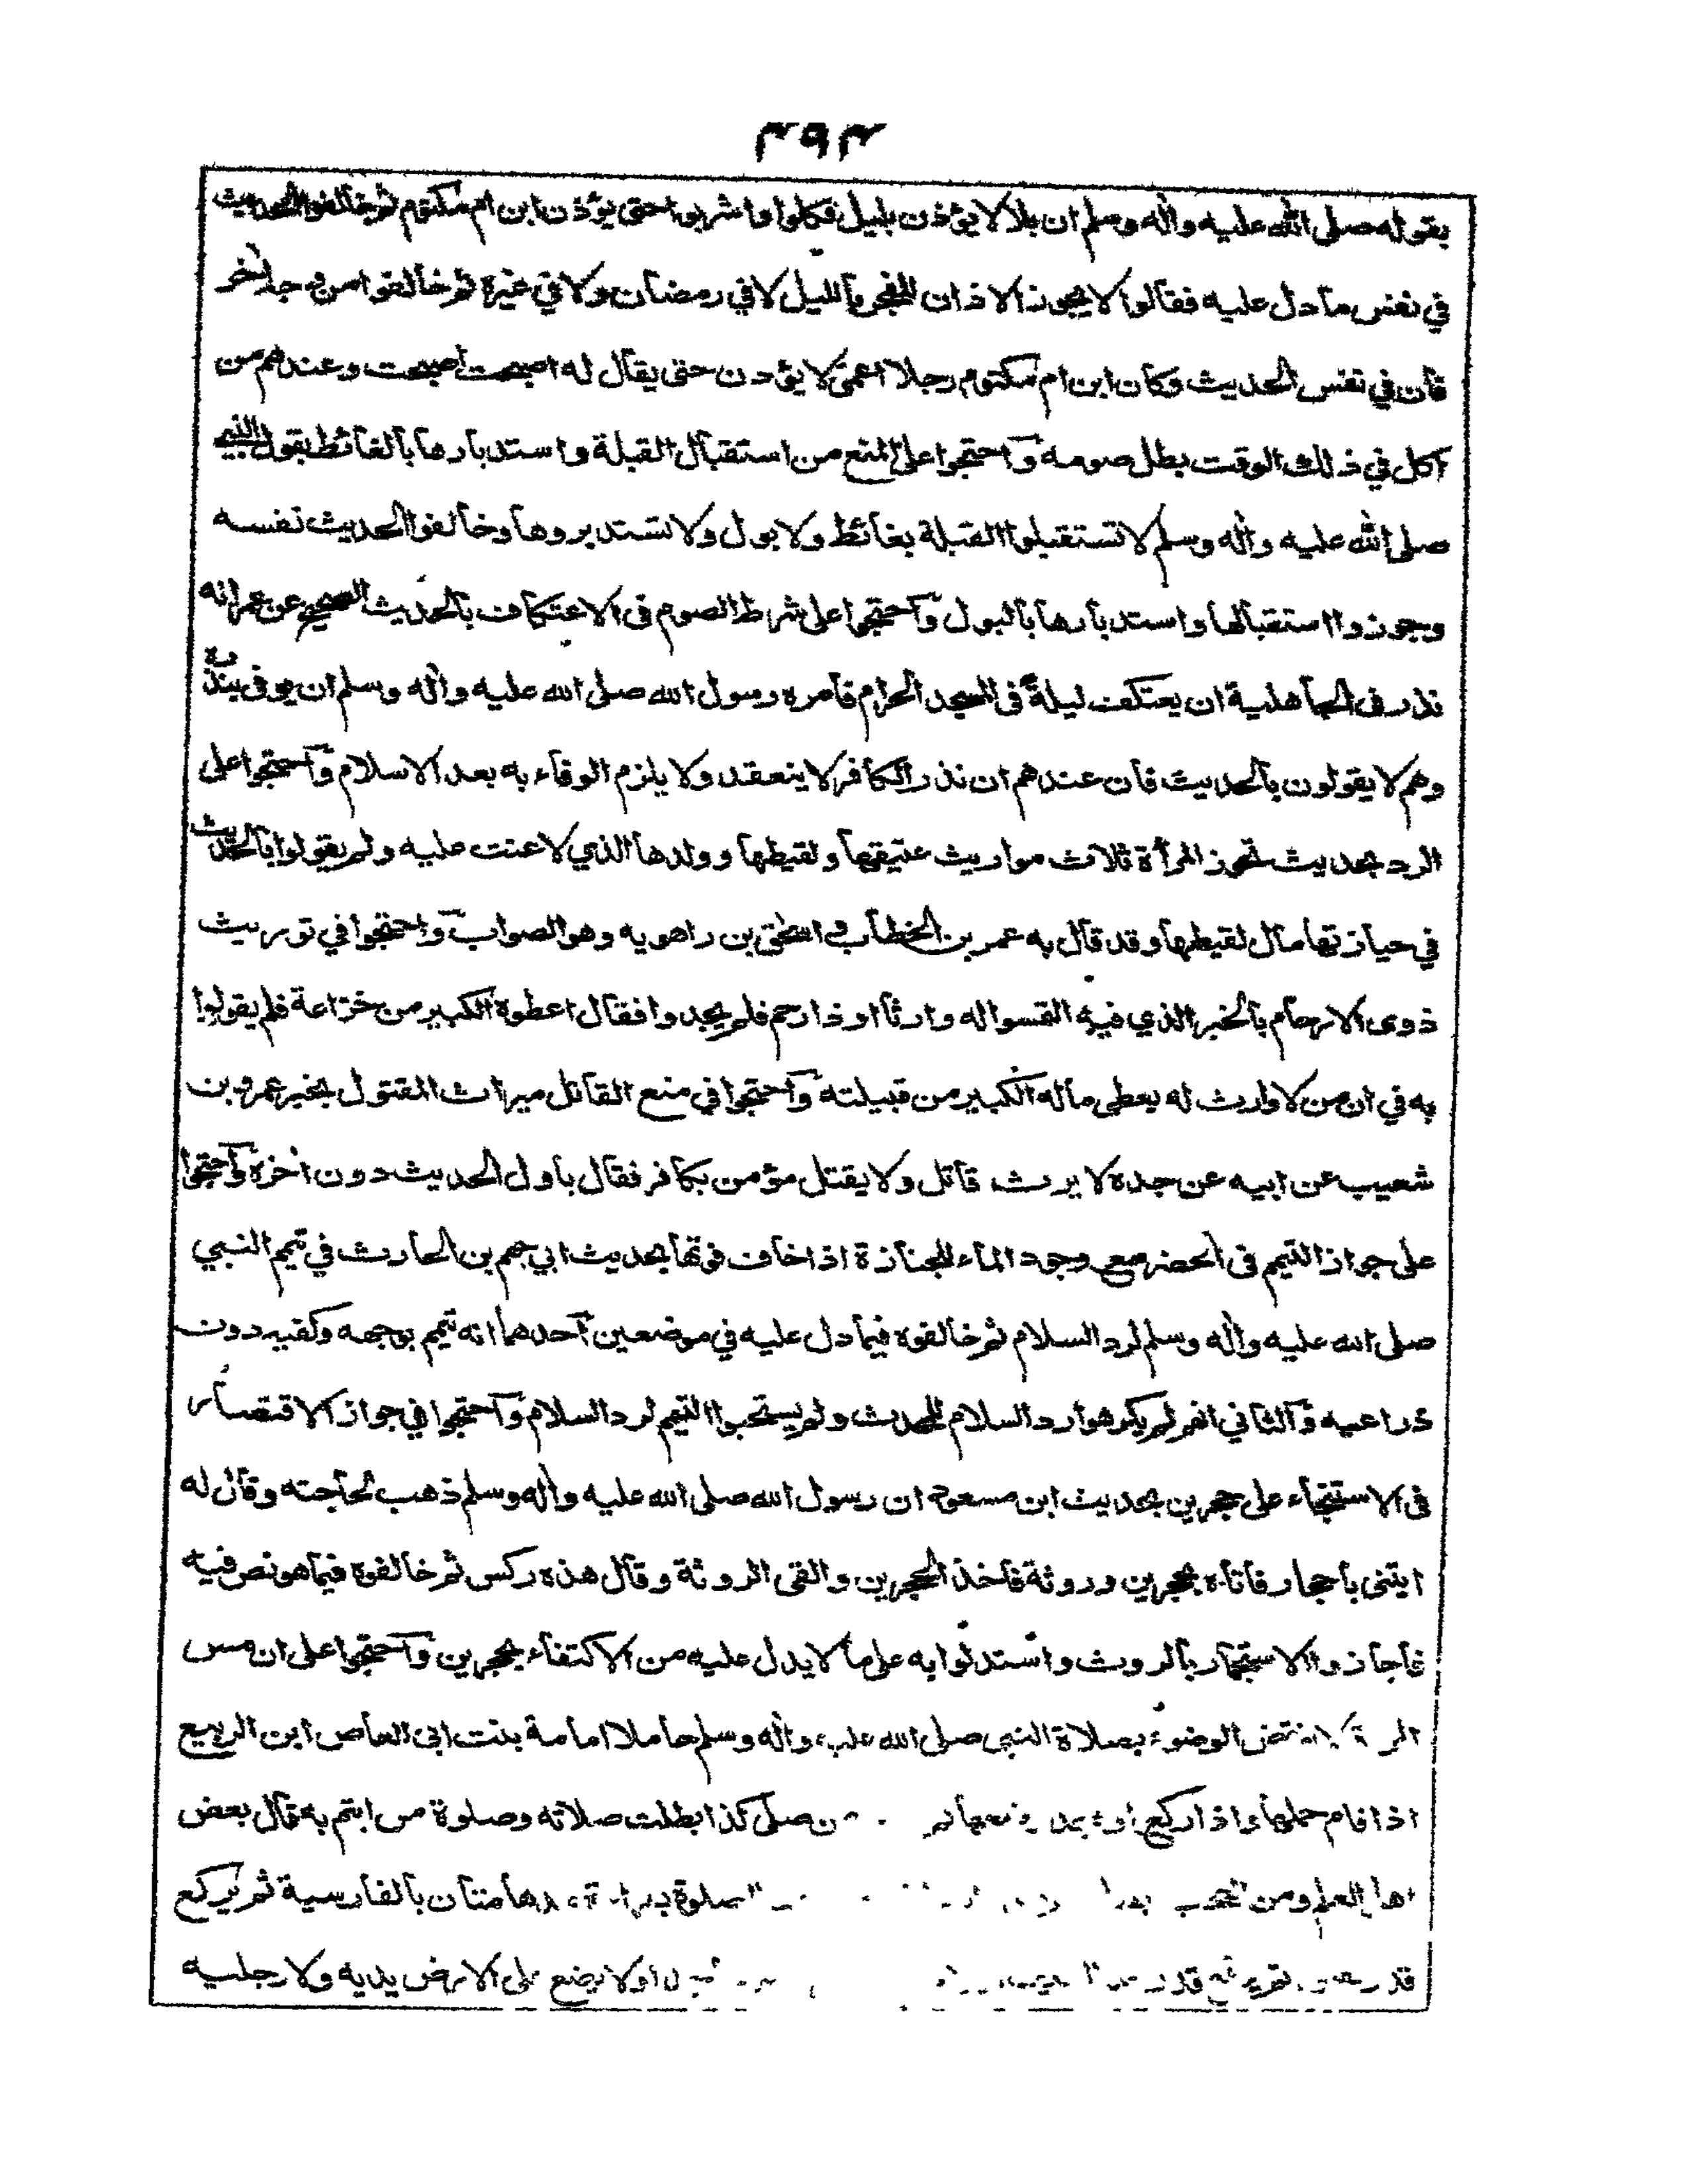 ٣٩٣
بقوله صلى الله عليه وأله وسلم ان بلالا يؤذن بليل فكلوا واشربوا حتى يؤذن ابن ام مكتوم ثم خالفوا الحديث
في نفس ما دل عليه فقالوا لا يجوز الاذان للفجر بالليل لا في رمضان ولا في غيرة ثم خالفوا من وجه أخر
فان في نفس الحديث وكان ابن ام مكتوم رجلا اعمى لا يؤذن حتى يقال له اصبحت اصبحت وعندهم من
اكل في ذلك الوقت بطل صومه واحتجوا على المنع من استقبال القبلة واستدبارها بالغائط بقول النبي
صلى الله عليه وأله وسلم لا تستقبلوا القبلة بغائط ولا بول ولا تستدبروها وخالفوا الحديث نفسه
وجوزوا استقبالها واستدبارها بالبول واحتجوا على شرط الصوم فى الاعتكاف بالحديث الصحيح عن عمر انه
نذر فى الجاهلية ان يعتكف ليلة فى المسجد الحرام فامره رسول الله صلى الله عليه وأله وسلم ان يوفى بنذره
وهم لا يقولون بالحديث فان عندهم ان نذر الكافر لا ينعقد ولا يلزم الوفاء به بعد الاسلام واحتجوا على
الرد بحديث تحوز المرأة ثلاث مواريث عتيقها ولقيطها وولدها الذي لاعنت عليه ولم يقولوا بالحديث
في حيازتها مال لقيطها وقد قال به عمر بن الخطاب و اسحق بن راهويه وهو الصواب واحتجوا في توريث
ذوى الارحام بالخبر الذي فيه التمسوا له وارثا او ذا رحم فلم يجدوا فقال اعطوه الكبير من خزاعة فلم يقولوا
به في ان من لا وارث له يعطى ماله الكبير من قبيلته واحتجوا في منع القاتل ميراث المقتول بخبر عمرو بن
شعيب عن ابيه عن جده لا يرث قاتل ولا يقتل مؤمن بكافر فقال باول الحديث دون أخرة واحتجوا
على جواز التيمم فى الحضر مع وجود الماء للجنازة اذا خاف فوتها بحديث ابي جهم بن الحارث في تيمم النبي
صلى الله عليه وأله وسلم لرد السلام ثم خالفوه فيما دل عليه في موضعين احدهما انه تيمم بوجهه وكفيه دون
ذراعيه والثاني انهم لم يكرهوا رد السلام للمحدث ولم يستحبوا التيمم لرد السلام واحتجوا في جواز الاقتصار
فى الاستنجاء على حجرين بحديث ابن مسعود ان رسول الله صلى الله عليه وأله وسلم ذهب لحاجته وقال له
ايتنى باحجار فاتاه بحجرين وروثة فاخذ الحجرين والقى الروثة وقال هذه ركس ثم خالفوه فيما هو نص فيه
فاجازوا الاستجمار بالروث واستدلوا به على ما لا يدل عليه من الاكتفاء بحجرين واحتجوا على ان مس
الوضوء بصلاة النبى صلى الله عليه وأله وسلم حاملا امامة بنت ابى العاص ابن الربيع
اذا قام حملها واذا ركع صلى كذا بطلت صلاته وصلوة من ايتم به قال بعض
العلم ومن صلوة مدهامتان بالفارسية ثم يركع
قدر قدر ولا يضع على الارض يديه ولا رجليه